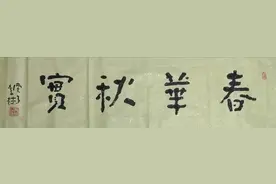 春華秋實